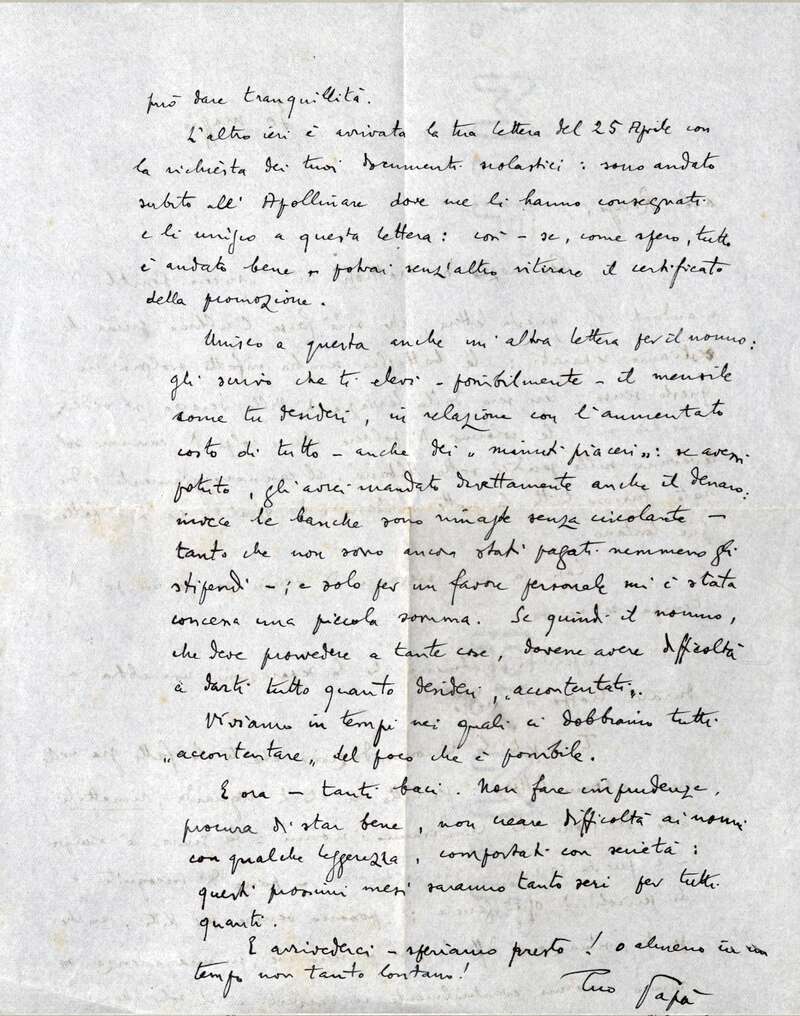 può dare tranquillità.
L'altro ieri è arrivata la tua lettera del 25 Aprile con
la richiesta dei tuoi documenti scolastici: sono andato
subito all' Apollinare dove me li hanno consegnati
e li unisco a questa lettera: così - se, come spero, tutto
è andato bene - potrai senz'altro ritirare il certificato
della promozione.
Unisco a questa anche un'altra lettera per il nonno:
gli scrivo che ti elevi - possibilmente - il mensile
come tu desideri, in relazione con l'aumentato
costo di tutto - anche dei „minuti piaceri": se avessi
potuto, gli avrei mandato direttamente anche il denaro:
invece le banche sono rimaste senza circolante -
tanto che non sono ancora stati pagati nemmeno gli
stipendi -; e solo per un favore personale mi è stata
concessa una piccola somma. Se quindi il nonno,
che deve provvedere a tante cose, dovesse avere difficoltà
a darti tutto quanto desideri, „accontentati„.
Viviamo in tempi nei quali ci dobbiamo tutti
„accontentare„ del poco che è possibile.
E ora - tanti baci. Non fare imprudenze,
procura di star bene, non creare difficoltà ai nonni
con qualche leggerezza, comportati con serietà:
questi prossimi mesi saranno tanto seri per tutti
quanti.
E arrivederci - speriamo presto! o almeno in un
tempo non tanto lontano!
Tuo Papà